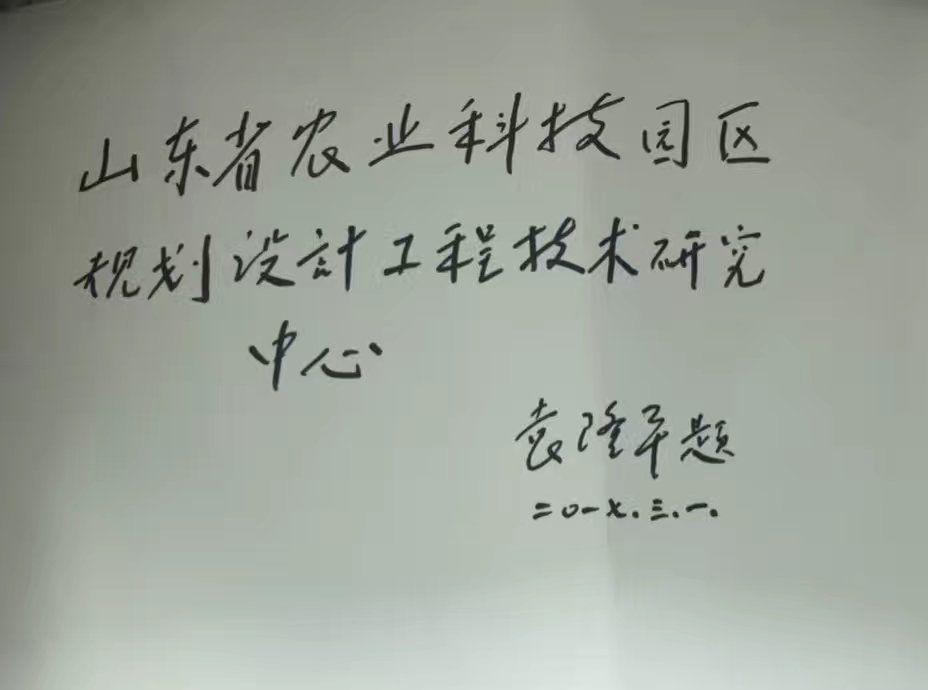 山东省农业科技园区
规划设計工程技术研究
中心
袁隆平题
二〇一七.三.一.